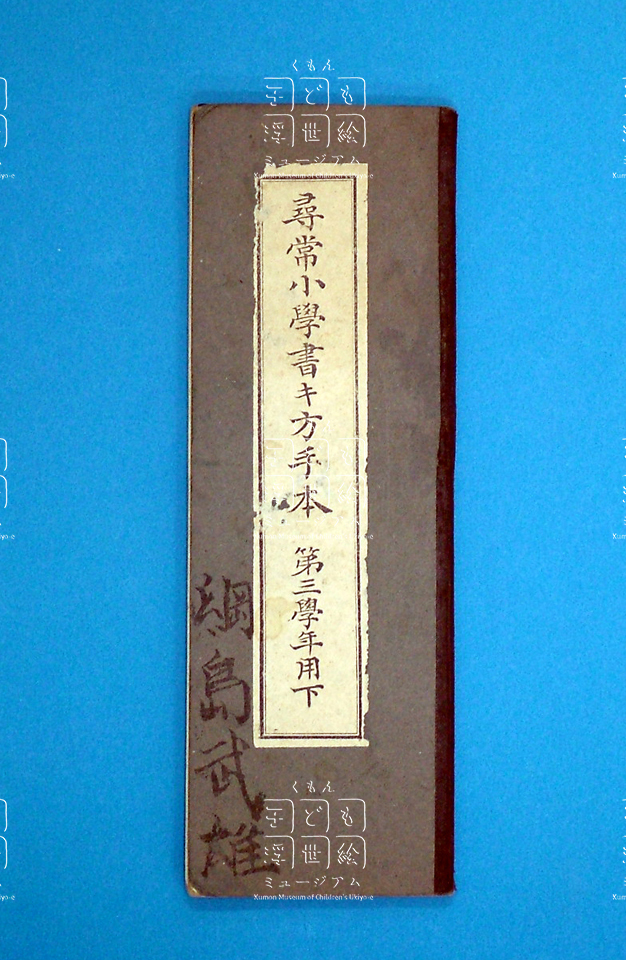 尋常小學書キ方手本 第三學年用下
綱島武雄
くもん
子ども
浮世絵
ミュージアム
Kumon Museum of Children's Ukiyo-e
くもん
子ども
浮世絵
ミュージアム
Kumon Museum of Children's Ukiyo-e